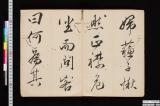 婦蘇子愀
然正襟危
坐而問客
曰何為其